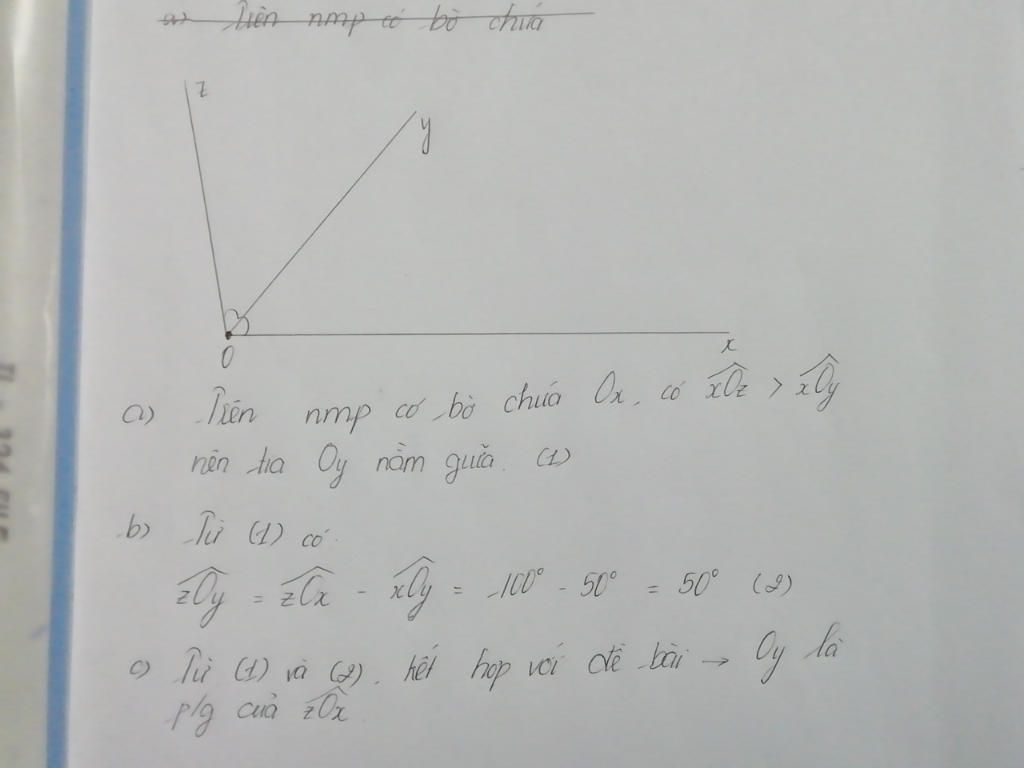 a) Trên nmp có bờ chứa
z
y
O
x
a) Trên nmp có bờ chứa Ox, có xOz > xOy
nên tia Oy nằm giữa. (1)
b) Từ (1) có
zOy = zOx - xOy = 100° - 50° = 50° (2)
c) Từ (1) và (2), kết hợp với đề bài → Oy là
p/g của zOx